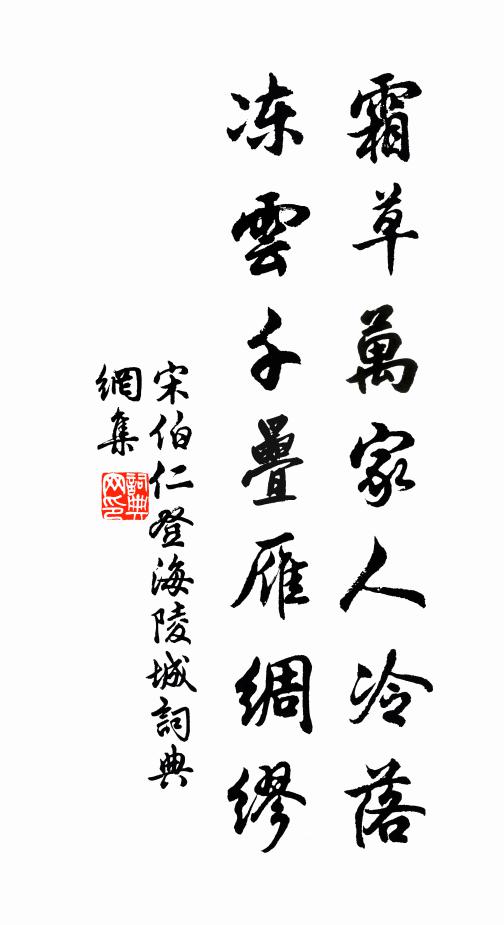 霜草萬家人冷落
凍雲千疊雁綢繆
宋伯仁登海陵城詞典
網集
詞典
网印